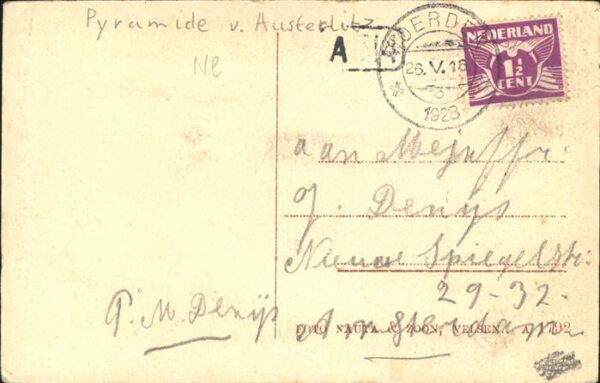 Pyramide v. Austerlitz
Ne
A
WOERDEN
26.V.18
3
1928
NEDERLAND
1½
CENT
aan Mejuffr.
J. Denijs
Nieuwe Spiegelstr.
29-32.
Amsterdam
P. M. Denijs
FOTO NAUTA & ZOON, VELSEN. A 1792